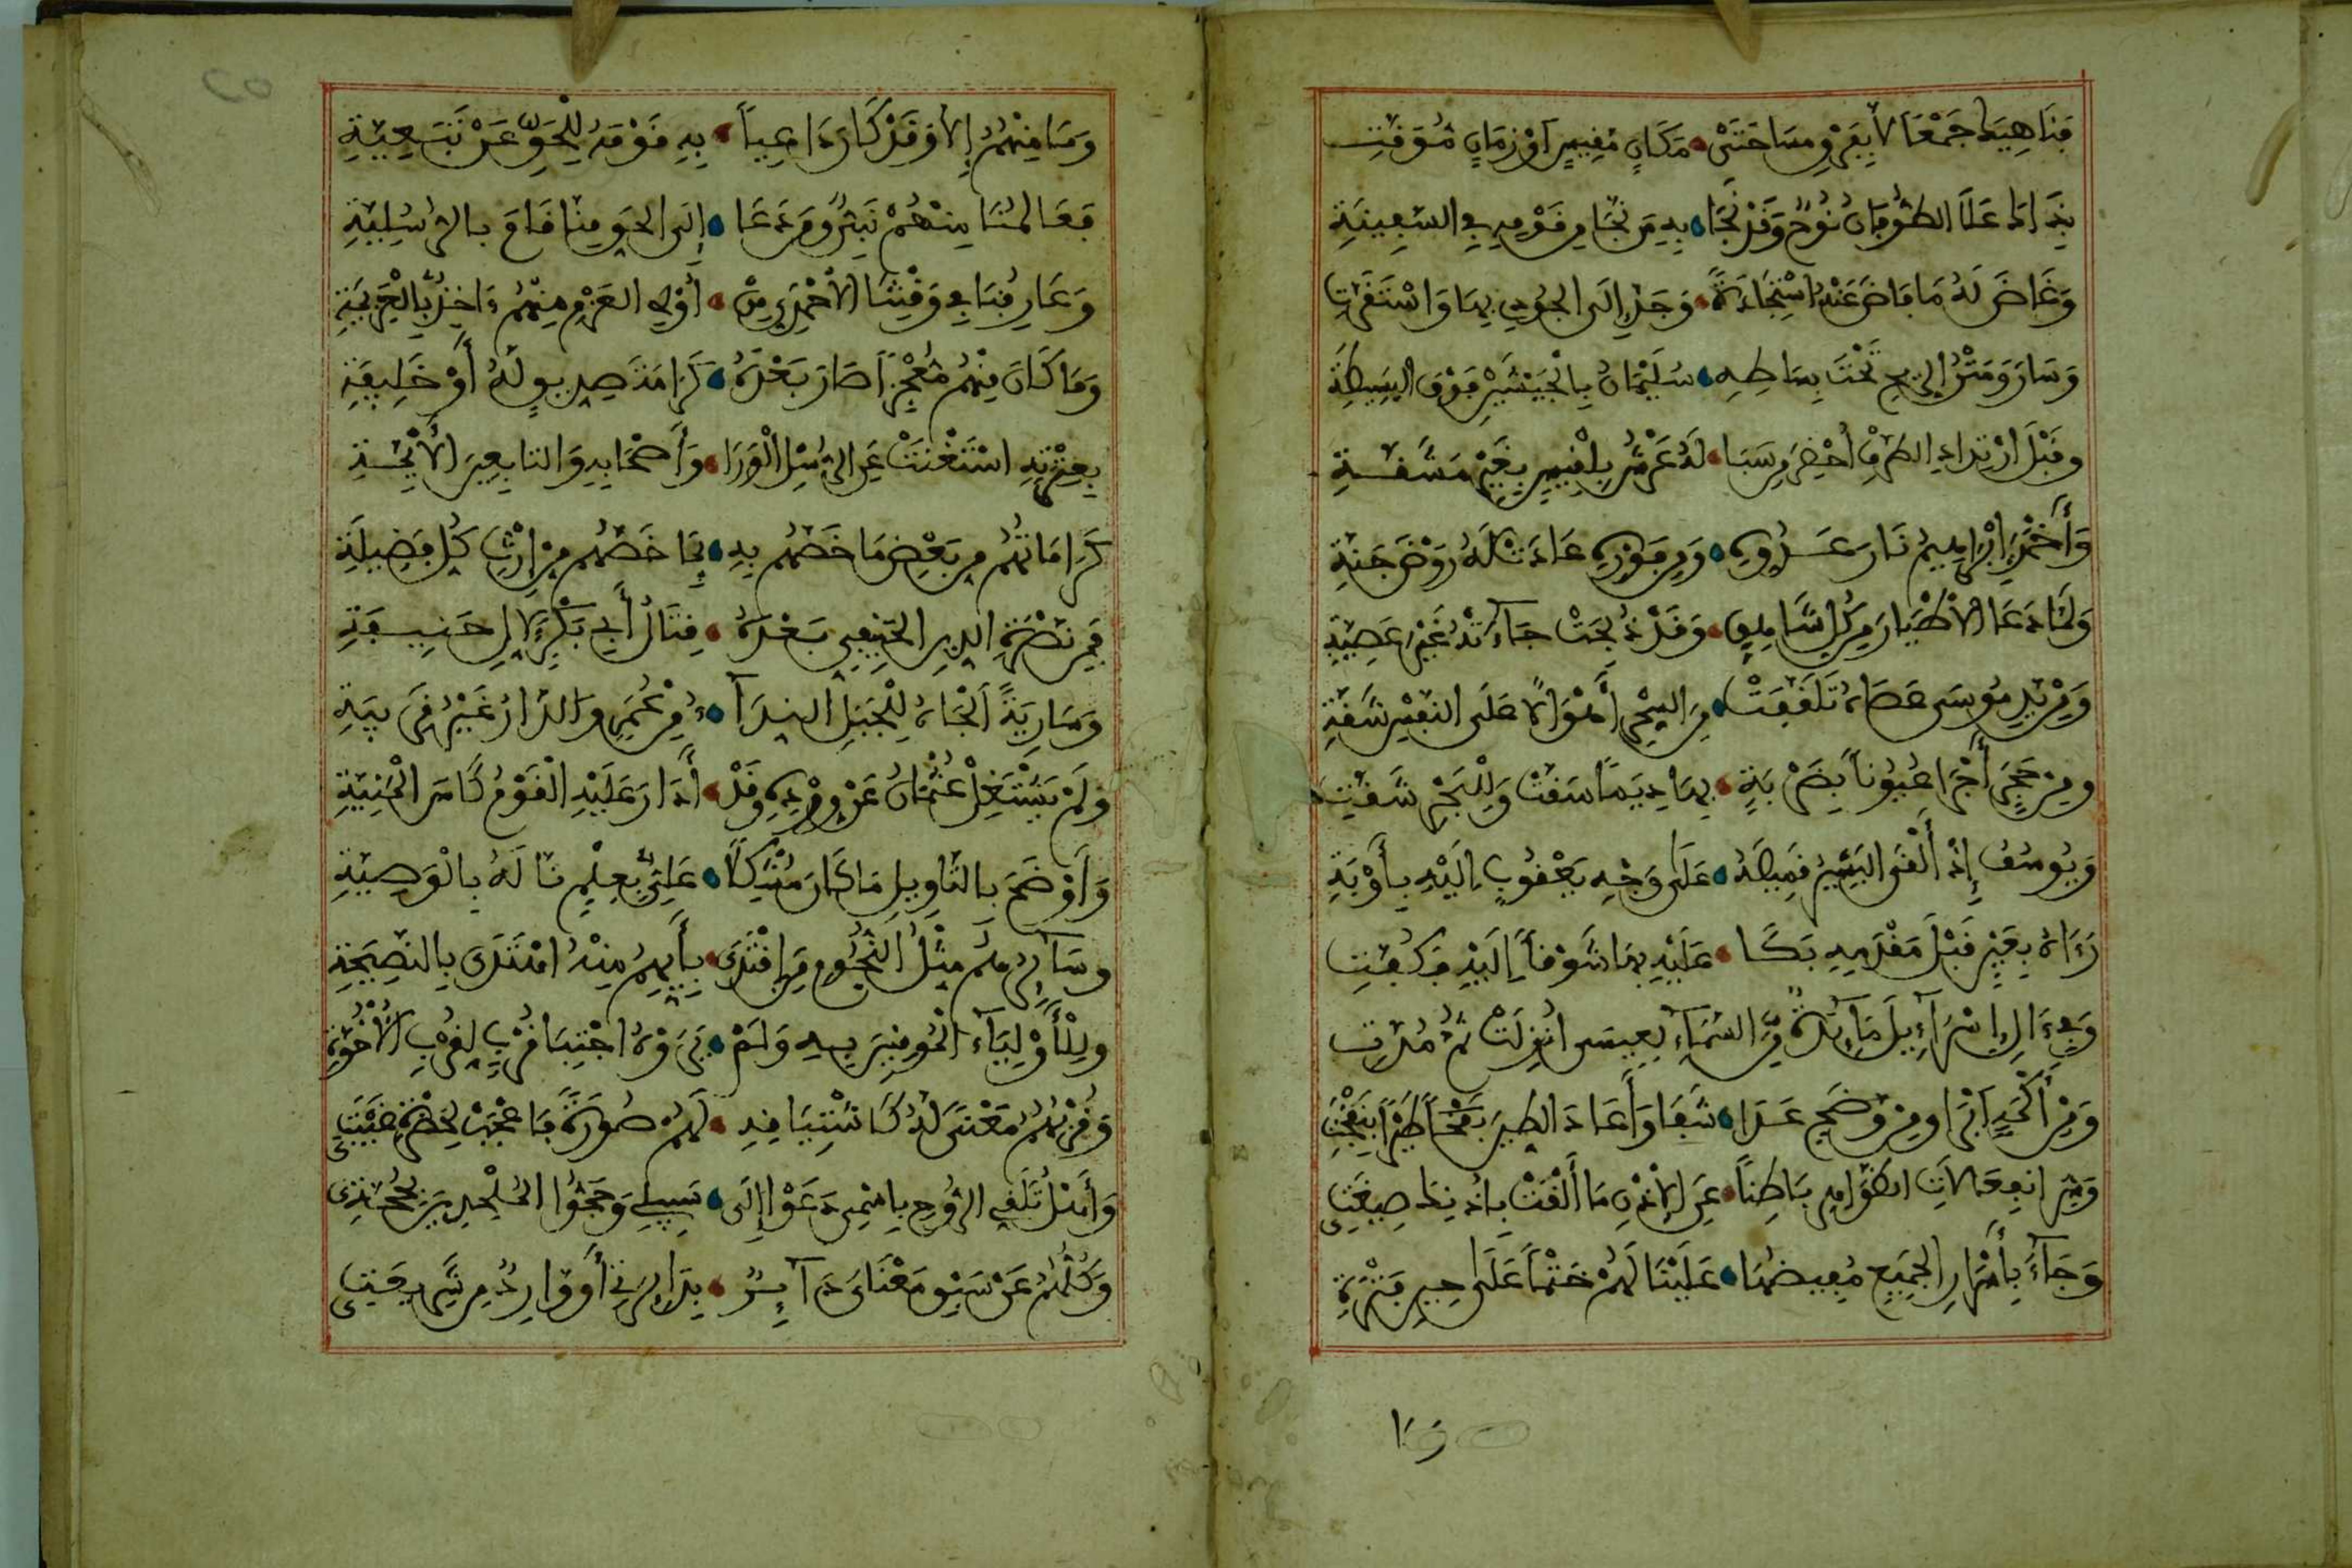 فَنَاهِيكَ جَمْعًا لَا بِفَرْقِ مِسَاحَتَيْ مَكَانٍ مَقِيسٍ أَوْ زَمَانٍ مُوَقَّتِ
بِذَاكَ عَلَا الطُّوفَانَ نُوحٌ وَقَدْ نَجَا بِهِ مَن نَجَا مِن قَوْمِهِ فِي السَّفِينَةِ
وَغَاضَ لَهُ مَا فَاضَ عَنْهُ اسْتِجَادَةً وَجَدَّ إِلَى الجُودِي بِهَا وَاسْتَقَرَّتِ
وَسَارَ وَمَتْنُ الرِّيحِ تَحْتَ بِسَاطِهِ سُلَيْمَانُ بِالْجَيْشَيْنِ فَوْقَ البَسِيطَةِ
وَقَبْلَ ارْتِدَادِ الطَّرْفِ أُحْضِرَ مِن سَبَا لَهُ عَرْشُ بِلْقِيسٍ بِغَيْرِ مَشَقَّةِ
وَأَخْمَدَ إِبْرَاهِيمُ نَارَ عَدُوِّهِ وَمِن نُورِهِ عَادَتْ لَهُ رَوْضَ جَنَّةِ
وَلَمَّا دَعَا الأَطْيَارَ مِن كُلِّ شَاهِقٍ وَقَدْ ذُبِحَتْ جَاءَتْهُ غَيْرَ عَصِيَّةِ
وَمِنْ يَدِهِ مُوسَى عَصَاهُ تَلَقَّفَتْ مِنَ السِّحْرِ أَهْوَالًا عَلَى النَّفْسِ شَقَّتِ
وَمِن حَجَرٍ أَجْرَا عُيُونًا بِضَرْبَةٍ بِهَا دِيَمًا سَقَتْ وَلِلْبَحْرِ شَقَّتِ
وَيُوسُفُ إِذْ أَلْقَى البَشِيرُ قَمِيصَهُ عَلَى وَجْهِ يَعْقُوبٍ إِلَيْهِ بِأَوْبَةِ
رَءَاهُ بِعَيْنٍ قَبْلَ مَقْدَمِهِ بَكَا عَلَيْهِ بِهَا شَوْقًا إِلَيْهِ فَكُفَّتِ
وَفِي ءَالِ إِسْرَآئِيلَ مَآئِدَةٌ مِنَ السَّمَآءِ لِعِيسَى أُنزِلَتْ ثُمَّ مُدَّتِ
وَمِنْ أَكْمَهٍ أَبْرَا وَمِنْ وَضَحٍ عَدَا شَفَا وَأَعَادَ الطِّينَ نَفْخًا طَيْرًا بِنَفْخَتِ
وَسِرُّ انفِعَالَاتِ الظَّوَاهِرِ بَاطِنًا عَنِ الإِذْنِ مَا أَلْقَتْ بِأُذْنِكَ صِيغَتِي
وَجَآءَ بِأَسْرَارِ الجَمِيعِ مُفِيضُهَا عَلَيْنَا لَهُمْ خَتْمًا عَلَى حِينِ فَتْرَةِ
وَمَا
وَمَا مِنْهُمُ إِلَّا وَقَدْ كَانَ دَاعِيًا بِهِ قَوْمَهُ لِلْحَقِّ عَنْ تَبَعِيَّةِ
فَعَالِمُنَا مِنْهُمْ نَبِيٌّ وَمَن دَعَا إِلَى الحَقِّ مِنَّا قَامَ بِالرُّسُلِيَّةِ
وَعَارِفُنَا فِي وَقْتِنَا الأَحْمَدِيِّ مِنْ أُوْلِي العَزْمِ مِنْهُمُ ءَاخِذٌ بِالْعَزِيمَةِ
وَمَا كَانَ مِنْهُمُ مُعْجِزًا صَارَ بَعْدَهُ كَرَامَةَ صِدِّيقٍ لَهُ أَوْ خَلِيفَةِ
بِعِتْرَتِهِ اسْتَغْنَتْ عَنِ الرُّسْلِ الْوَرَا وَأَصْحَابِهِ وَالتَّابِعِينَ الأَئِمَّةِ
كَرَامَاتُهُمْ مِن بَعْضِ مَا خَصَّهُمْ بِهِ بِمَا خَصَّهُمْ مِنْ إِرْثِ كُلِّ فَضِيلَةِ
فَمِن نُصْرَةِ الدِّينِ الحَنِيفِي بَعْدَهُ قِتَالُ أَبِي بَكْرٍ لِآلِ حَنِيفَةِ
وَسَارِيَةٌ أَلْجَاهُ لِلْجَبَلِ النِّدَآءُ مِنْ عُمَرٍ وَالدَّارُ غَيْرُ قَرِيبَةِ
وَلَمْ يَشْتَغِلْ عُثْمَانُ عَنْ وِرْدِهِ وَقَدْ أَدَارَ عَلَيْهِ الْقَوْمُ كَأْسَ الْمَنِيَّةِ
وَأَوْضَحَ بِالتَّأْوِيلِ مَا كَانَ مُشْكِلًا عَلِيٌّ بِعِلْمٍ نَالَهُ بِالْوَصِيَّةِ
وَسَآئِرُهُمْ مِثْلُ النُّجُومِ مَنِ اقْتَدَى بِأَيِّهِمُ مِنْهُ اهْتَدَى بِالنَّصِيحَةِ
وَلِلْأَوْلِيَآءِ الْمُومِنِينَ بِهِ وَلَمْ يَرَوْهُ اجْتِبَا قُرْبٍ لِقُرْبِ الأُخُوَّةِ
وَقُرْبُهُمُ مَعْنًى لَهُ كَاشْتِيَاقِهِ لَهُمْ صُورَةً فَاعْجَبْ لِحَضْرَةِ غَيْبَتِ
وَأَهْلُ تَلَقِّي الرُّوحِ بِاسْمِي دَعَوْا إِلَى سَبِيلِي وَحَجُّوا المُلْحِدِينَ بِحُجَّتِي
وَكُلُّهُمُ عَنْ سَبْقِ مَعْنَايَ دَآئِرٌ بِدَائِرَتِي أَوْ وَارِدٌ مِن شَرِيعَتِي